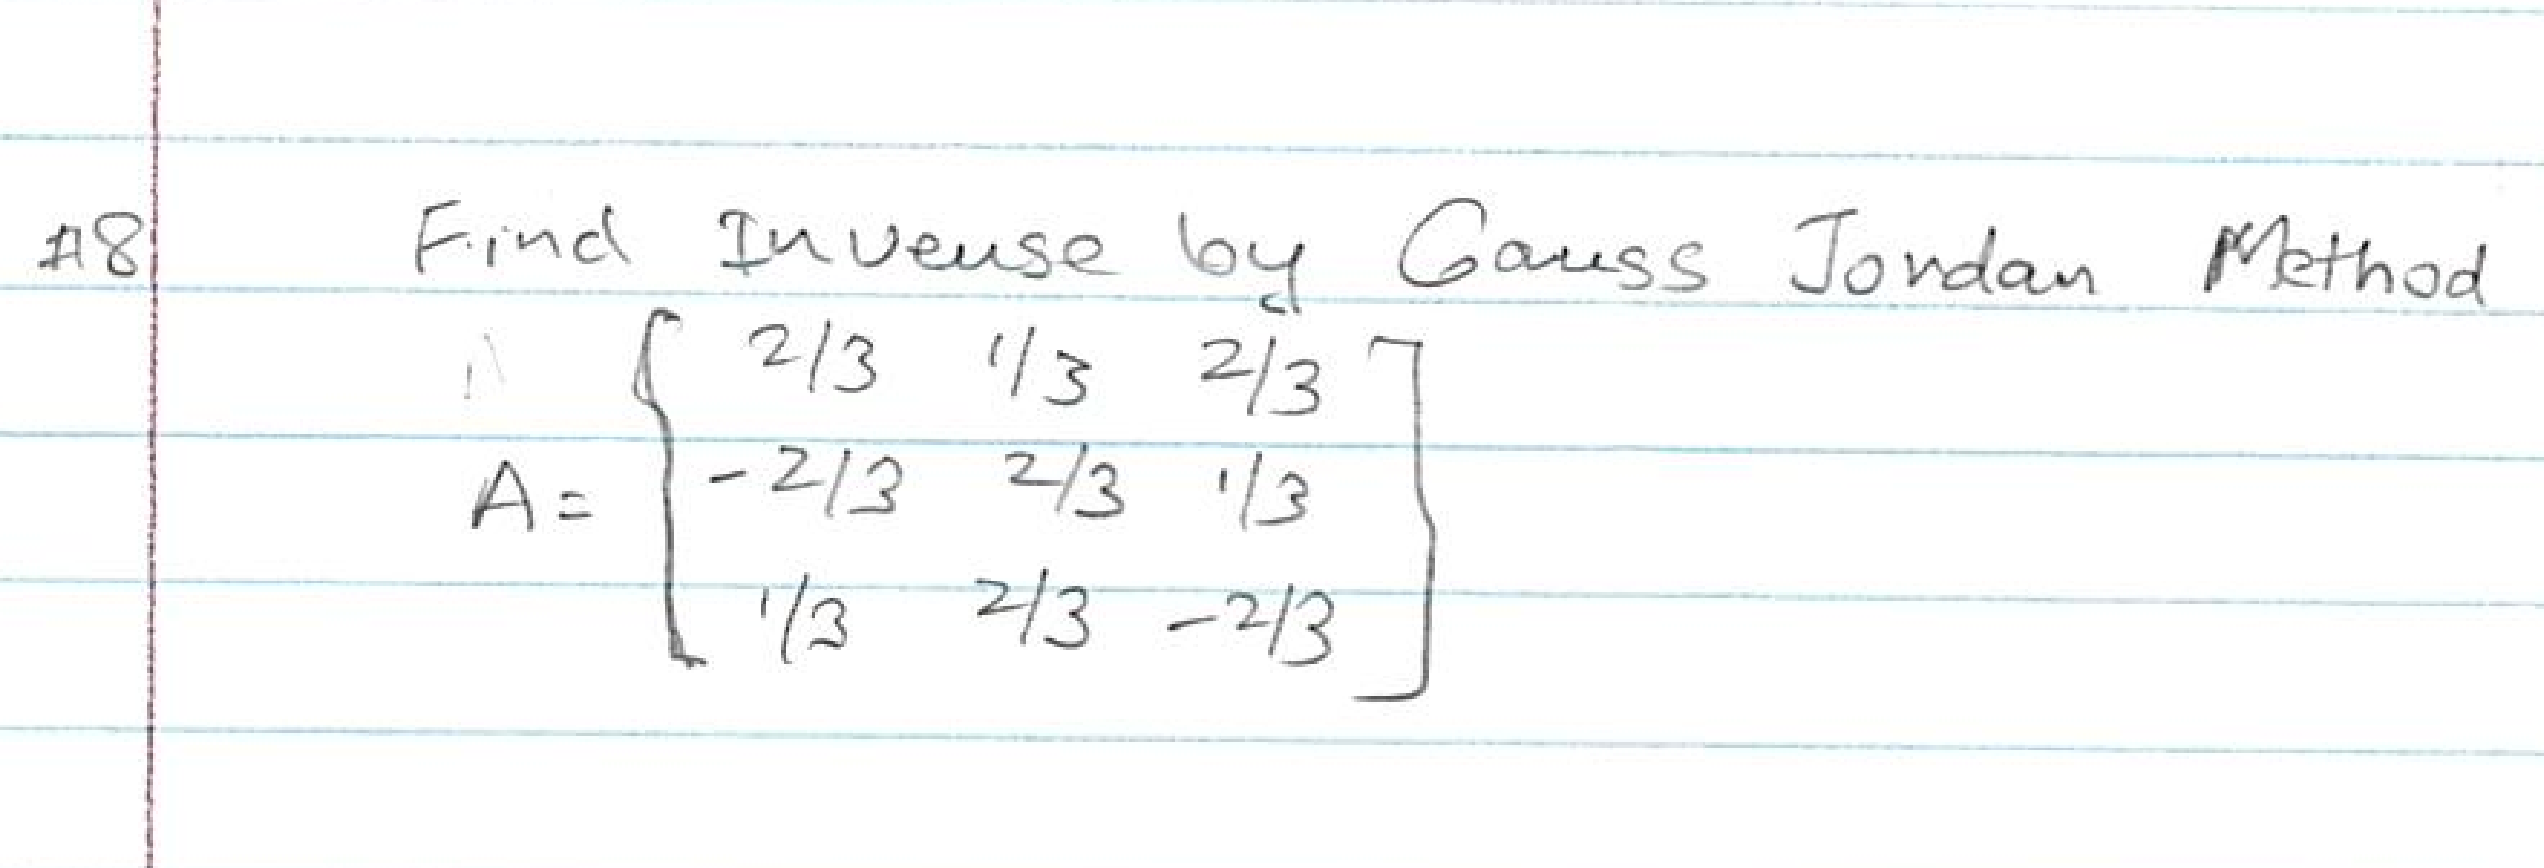 #8 Find Inverse by Gauss Jordan Method
2/3 1/3 2/3
A = -2/3 2/3 1/3
1/3 2/3 -2/3